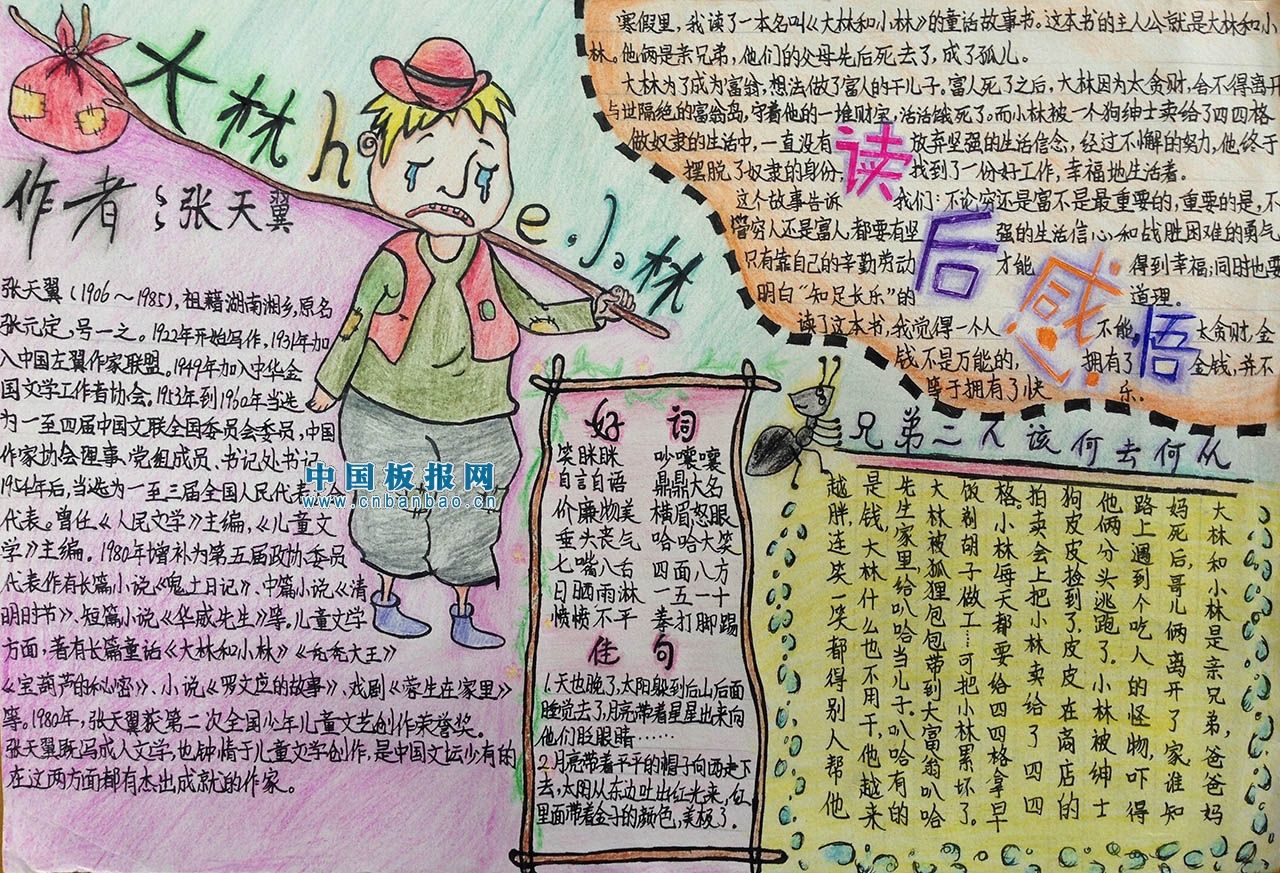 大林he小林
作者：张天翼
张天翼(1906～1985),祖籍湖南湘乡,原名
张元定,号一之。1922年开始写作,1931年加
入中国左翼作家联盟。1949年加入中华全
国文学工作者协会。1953年到1960年当选
为一至四届中国文联全国委员会委员,中国
作家协会理事、党组成员、书记处书记
1954年后,当选为一至三届全国人民代表
代表。曾任《人民文学》主编,《儿童文
学》主编。1980年增补为第五届政协委员
代表作有长篇小说《鬼土日记》、中篇小说《清
明时节》、短篇小说《华威先生》等。儿童文学
方面,著有长篇童话《大林和小林》《秃秃大王》
《宝葫芦的秘密》、小说《罗文应的故事》、戏剧《蓉生在家里》
等。1980年,张天翼获第二次全国少年儿童文艺创作荣誉奖。
张天翼既写成人文学,也钟情于儿童文学创作,是中国文坛少有的
在这两方面都有杰出成就的作家。
中国板报网
www.cnbanbao.cn
读后感悟
寒假里,我读了一本名叫《大林和小林》的童话故事书。这本书的主人公就是大林和小
林。他俩是亲兄弟,他们的父母先后死去了,成了孤儿。
大林为了成为富翁,想法做了富人的干儿子。富人死了之后,大林因为太贪财,舍不得离开
与世隔绝的富翁岛,守着他的一堆财宝,活活饿死了。而小林被一个狗绅士卖给了四四格
做奴隶的生活中,一直没有放弃坚强的生活信念,经过不懈的努力,他终于
摆脱了奴隶的身份,找到了一份好工作,幸福地生活着。
这个故事告诉我们:不论穷还是富不是最重要的,重要的是,不
管穷人还是富人,都要有坚强的生活信心和战胜困难的勇气
只有靠自己的辛勤劳动才能得到幸福;同时也要
明白“知足长乐”的道理。
读了这本书,我觉得一个人不能太贪财,金
钱不是万能的,拥有了金钱,并不
等于拥有了快乐。
好词
笑眯眯 吵嚷嚷
自言自语 鼎鼎大名
价廉物美 横眉怒眼
垂头丧气 哈哈大笑
七嘴八舌 四面八方
日晒雨淋 一五一十
愤愤不平 拳打脚踢
佳句
1.天也晚了,太阳躲到后山后面
睡觉去了,月亮带着星星出来向
他们眨眼睛……
2.月亮带着平平的帽子向西走下
去,太阳从东边吐出红光来,红
里面带着金子的颜色,美极了。
兄弟二人该何去何从
大林和小林是亲兄弟,爸爸妈
妈死后,哥儿俩离开了家谁知
路上遇到个吃人的怪物,吓得
他俩分头逃跑了。小林被绅士
狗皮皮捡到了,皮皮在商店的
拍卖会上把小林卖给了四四
格。小林每天都要给四四格拿早
做剃胡子做工…可把小林累坏了。
大林被狐狸包包带到大富翁叭哈
先生家里,给叭哈当儿子。叭哈有的
是钱,大林什么也不用干,他越来
越胖,连笑一笑都得别人帮他